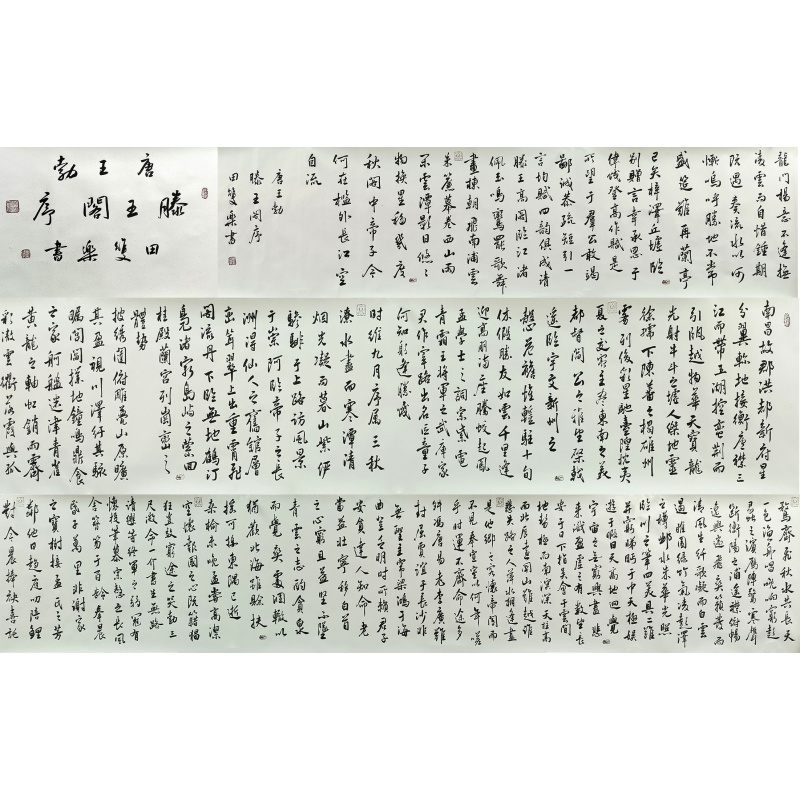 唐王勃
滕王閣序
田雙樂書
南昌故郡洪都新府星
分翼軫地接衡廬襟三
江而帶五湖控蠻荊而
引甌越物華天寶龍
光射牛斗之墟人傑地靈
徐孺下陳蕃之榻雄州
霧列俊彩星馳臺隍枕夷
夏之交賓主盡東南之美
都督閻公之雅望棨戟
遙臨宇文新州之
懿範襜帷暫駐十旬
休假勝友如雲千里逢
迎高朋滿座騰蛟起鳳
孟學士之詞宗紫電
青霜王將軍之武庫家
君作宰路出名區童子
何知躬逢勝餞
時維九月序屬三秋
潦水盡而寒潭清
烟光凝而暮山紫儼
驂騑于上路訪風景
于崇阿臨帝子之長
洲得仙人之舊館層
巒聳翠上出重霄飛
閣流丹下臨無地鶴汀
鳧渚窮島嶼之縈回
桂殿蘭宮列岡巒之
體勢
披繡闥俯雕甍山原曠
其盈視川澤紆其駭
矚閭閻撲地鐘鳴鼎食
之家舸艦迷津青雀
黃龍之軸虹銷雨霽
彩徹雲衢落霞與孤
鶩齊飛秋水共長天
一色漁舟唱晚響窮彭
蠡之濱雁陣驚寒聲
斷衡陽之浦遙襟俯暢
逸興遄飛爽籟發而
清風生纖歌凝而白雲
遏睢園綠竹氣凌彭澤
之樽鄴水朱華光照
臨川之筆四美具二難
并窮睇眄于中天極娛
遊于暇日天高地迥覺
宇宙之無窮興盡悲
來識盈虛之有數望長
安于日下指吳會于雲間
地勢極而南溟深天柱高
而北辰遠關山難越誰
悲失路之人萍水相逢盡
是他鄉之客懷帝閽而
不見奉宣室以何年嗟
乎時運不齊命途多
舛馮唐易老李廣難
封屈賈誼于長沙非
無聖主竄梁鴻于海
曲豈乏明時所賴君子
安貧達人知命老
當益壯寧移白首
之心窮且益堅不墜
青雲之志酌貪泉
而覺爽處涸轍以
猶歡北海雖賒扶
搖可接東隅已逝
桑榆非晚孟嘗高潔
空懷報國之心阮籍猖
狂豈效窮途之哭勃三
尺微命一介書生無路
請纓等終軍之弱冠有
懷投筆慕宗愨之長風
舍簪笏于百齡奉晨
昏于萬里非謝家
之寶樹接孟氏之芳
鄰他日趨庭叨陪鯉
對今晨捧袂喜託
龍門楊意不逢撫
凌雲而自惜鍾期
既遇奏流水以何
慚嗚呼勝地不常
盛筵難再蘭亭
已矣梓澤丘墟臨
別贈言幸承恩于
偉餞登高作賦是
所望于群公敢竭
鄙誠恭疏短引一
言均賦四韻俱成請
滕王高閣臨江渚
佩玉鳴鸞罷歌舞
畫棟朝飛南浦雲
朱簾暮卷西山雨
閑雲潭影日悠々
物換星移幾度
秋閣中帝子今
何在檻外長江空
自流
唐王勃
滕王閣序
田雙樂書